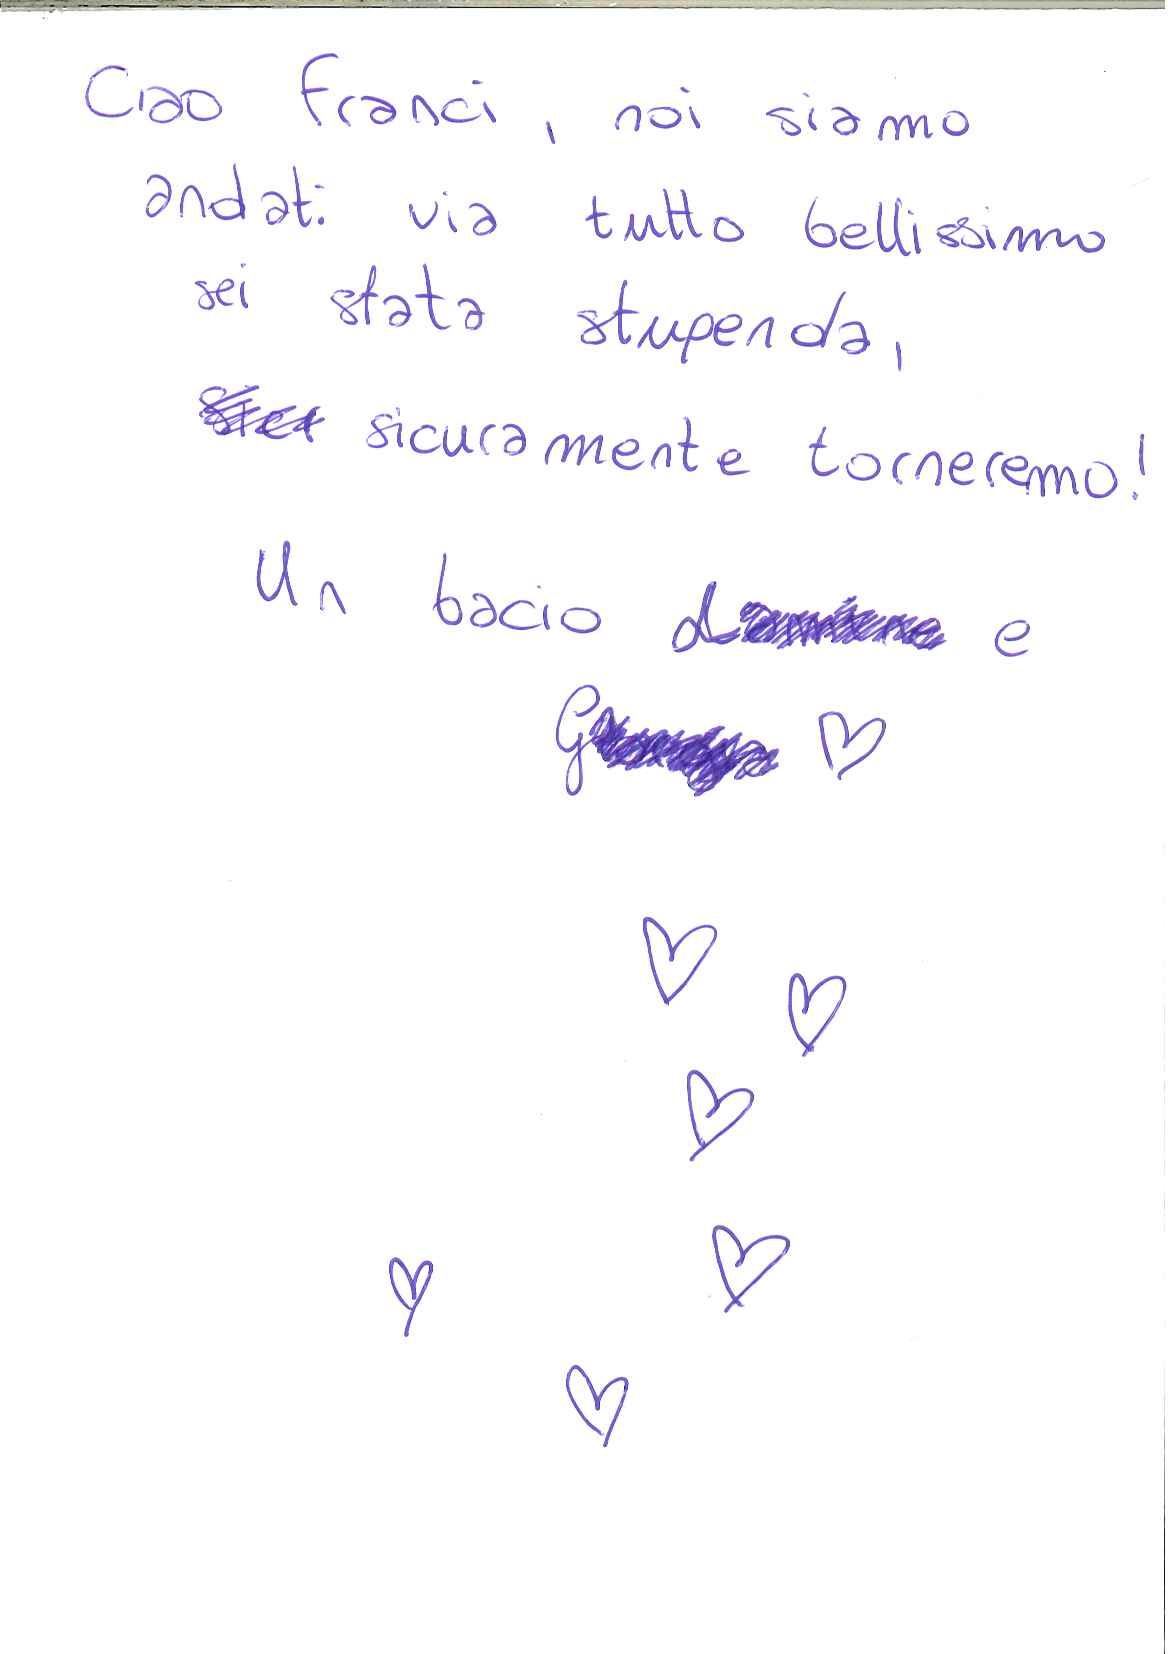 Ciao Franci, noi siamo
andati via tutto bellissimo
sei stata stupenda,
sicuramente torneremo!
Un bacio e